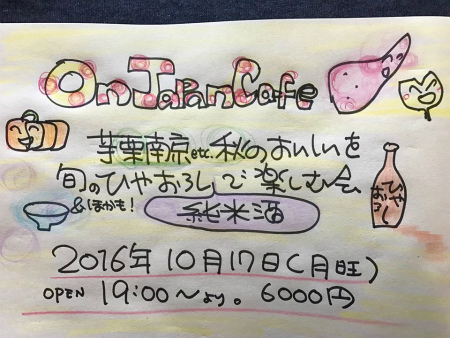 On Japan Cafe
芋栗南京etc.秋のおいしいを
旬のひやおろしで楽しむ会
&ほかも!
純米酒
ひやおろし
2016年10月17日(月旺)
OPEN 19:00〜より。6000円